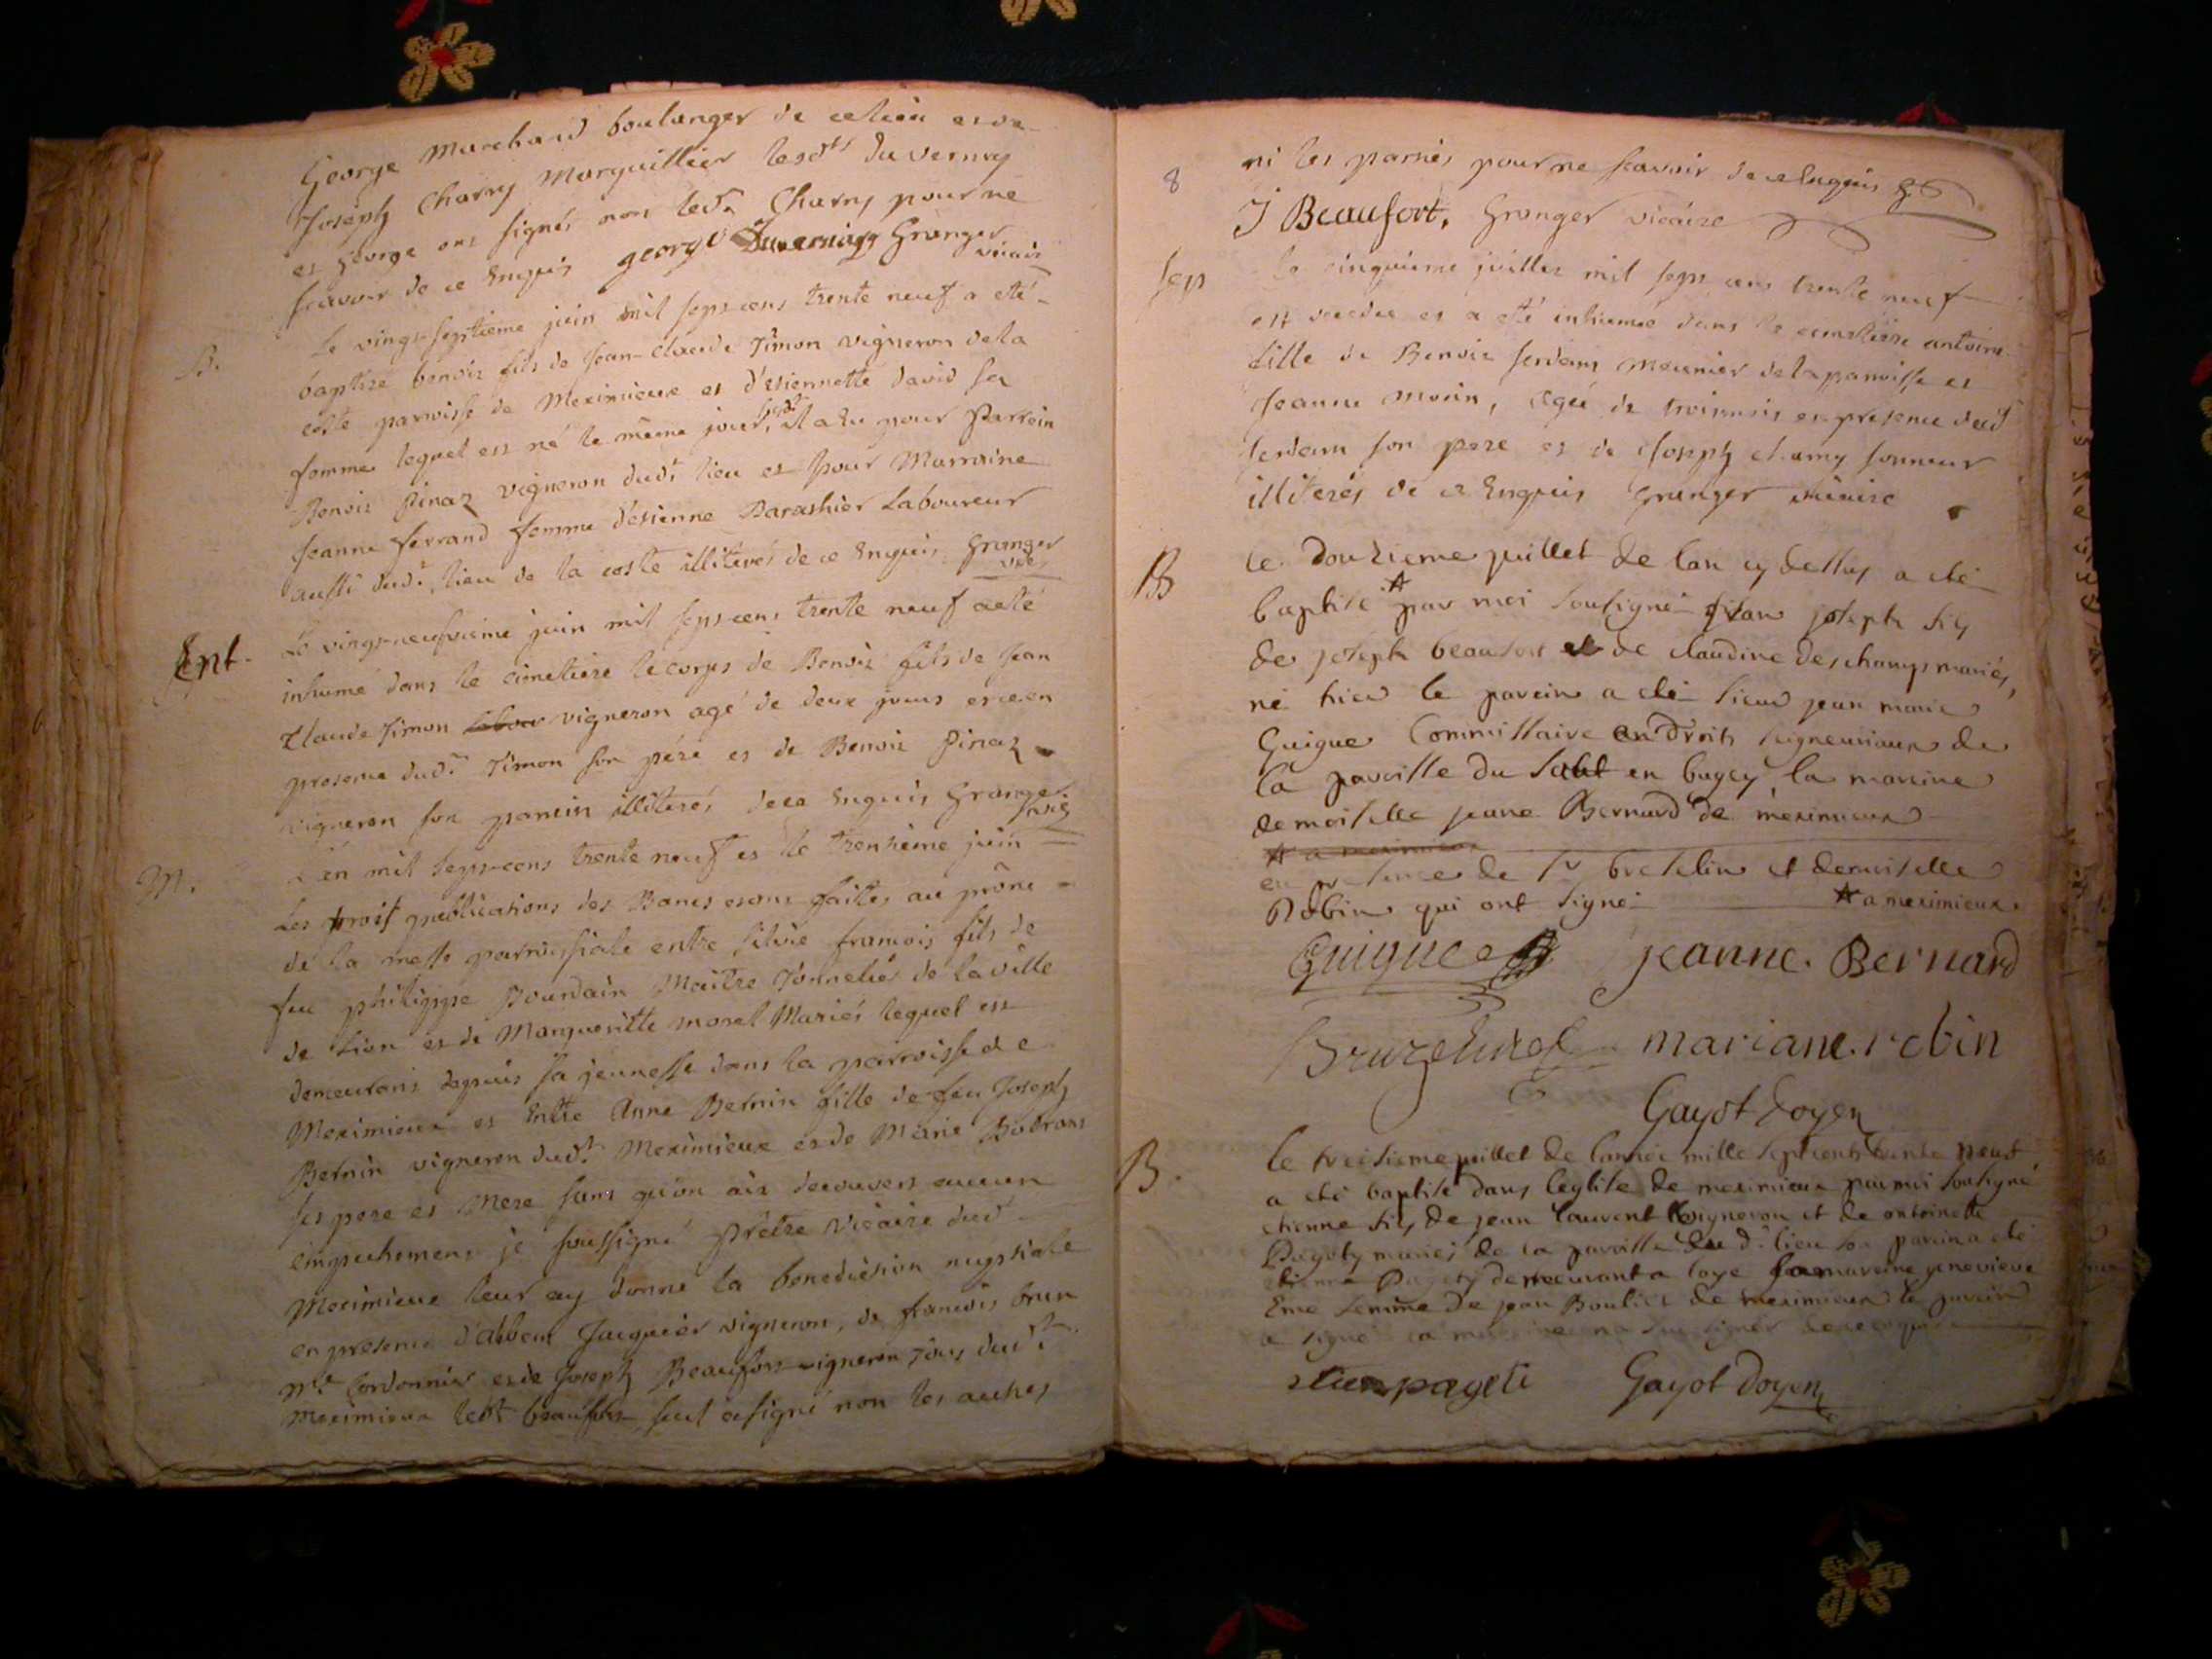 George Marchand boulanger de ce lieu et de
Joseph Charny Marguillier lesdts duvernay
et george ont signés non ledt. Charny pour ne
scavoir de ce Enquis george Duvernay Granger
vicaire
B.
Le vingt-septieme juin mil sept cens trente neuf a eté
baptisé benoit fils de Jean-claude Timon vigneron de la
coste parroisse de Meximieux et d'etiennette david sa
femme lequel est né le même jour, il a Eu pour Parrein
Benoit Pinaz vigneron dudt. lieu et pour Marraine
Jeanne ferrand femme d'etienne Barashier Laboureur
aussi dudt. lieu de la coste illiterés de ce Enquis. Granger
vice
Sept.
Le vingt-neufvieme juin mil sept-cens trente neuf a eté
inhumé dans le cimetiere le corps de Benoit fils de Jean
Claude Timon vigneron agé de deux jours et ce en
presence dudt. Timon son pere et de Benoit Pinaz
vigneron son parrein illiterés de ce Enquis Granger
M.
L'an mil sept-cens trente neuf et le trentieme juin
Les trois publications des Bancs etant faites au prône
de la messe parroissiale entre françois fils de
feu philippe Bourdain Maitre Tonnelier de la ville
de Lion et de Margueritte morel Mariés lequel est
demeurant depuis sa jeunesse dans la parroisse de
Meximieux et Entre Anne Bernin fille de feu Joseph
Bernin vigneron dudt. Meximieux et de Marie
ses pere et Mere sans qu'on ait decouvert aucun
empechement je soussigné Prêtre Vicaire dudt
Meximieux leur ay donné la benediction nuptiale
en presence d'Albert Jacquier vigneron, de francois brun
Me. Cordonnier et de Joseph Beaufort vigneron Tous dudt.
Meximieux ledt beaufort seul a signé non les autres
8
ni les parties pour ne scavoir de ce Enquis
J Beaufort. Granger vicaire
Sep
le cinquieme juillet mil sept cens trente neuf
est decedée et a eté inhumée dans le cimetiere antoine
fille de Benoit serdam meunier de la parroisse et
Jeanne morin, agée de trois mois en presence dudt
serdam son pere et de Joseph charny sonneur
illiterés de ce Enquis Granger vicaire
B
le Douzieme juillet de lan cy dessus a eté
baptisé par moi soussigné joseph fils
de joseph beaufort et de claudine deschamps mariés,
né hier le parein a eté sieur jean marie
Guigue Commissaire en Droits seigneuriaux de
la paroisse du en bugey la mareine
demoiselle jeane Bernard de meximieux
a meximieux
en presence de sr bretelin et demoiselle
Robin qui ont signé a meximieux
Guigue jeanne. Bernard
mariane. robin
Gayot doyen
B.
le treisieme juillet de lannée mille sept cents trente neuf
a eté baptisé dans leglise de meximieux par moi soussigné
etienne fils de jean laurent vigneron et de antoinette
Pagety mariés de la paroisse du d. lieu son parein a eté
etienne Pagety demeurant a loye sa mareine genevieve
femme de jean Boulier de meximieux le parein
a signé la mareine na
etien pageti Gayot doyen